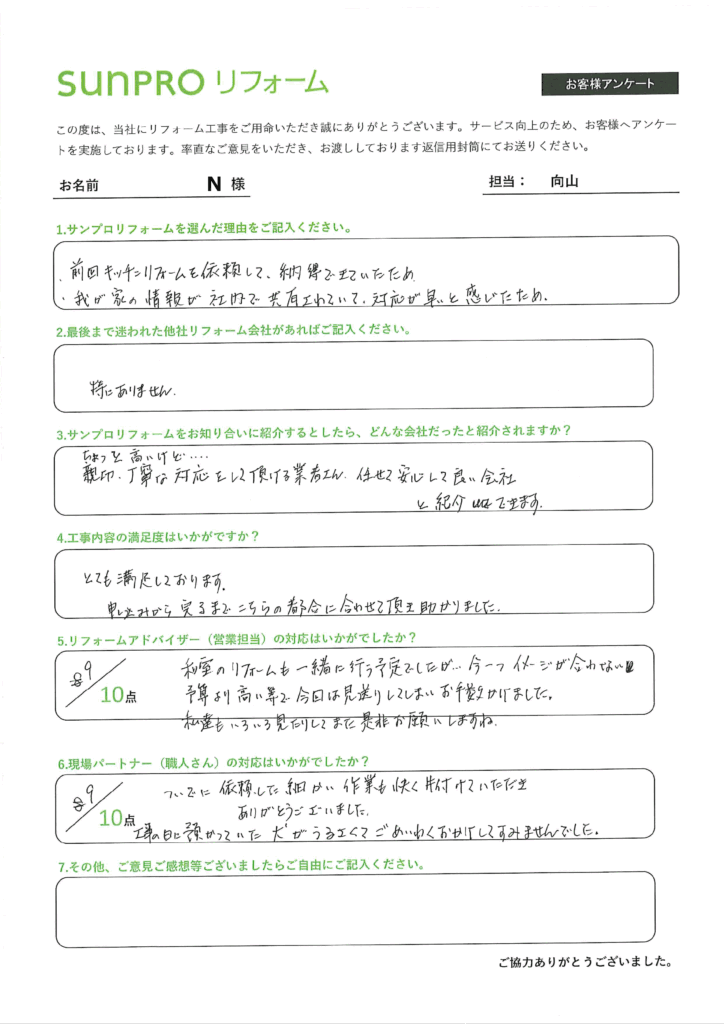 SUNPRO リフォーム
お客様アンケート
この度は、当社にリフォーム工事をご用命いただき誠にありがとうございます。サービス向上のため、お客様へアンケー
トを実施しております。率直なご意見をいただき、お渡ししております返信用封筒にてお送りください。
お名前 N 様 担当： 向山
1.サンプロリフォームを選んだ理由をご記入ください。
・前回キッチンリフォームを依頼して、納得できていたため
・我が家の情報が社内で共有されていて、対応が早いと感じたため.
2.最後まで迷われた他社リフォーム会社があればご記入ください。
特にありません.
3.サンプロリフォームをお知り合いに紹介するとしたら、どんな会社だったと紹介されますか？
ちょっと高いけど‥‥
親切、丁寧な対応をして頂ける業者さん. 任せて安心して良い会社
と紹介できます.
4.工事内容の満足度はいかがですか？
とても満足しております.
申し込みから完了までこちらの都合に合わせて頂き助かりました.
5.リフォームアドバイザー（営業担当）の対応はいかがでしたか？
9／10点
和室のリフォームも一緒に行う予定でしたが‥今一つイメージが合わない
予算より高い等で今回は見送りしてしまいお手数かけました。
私達もいろいろ見たりしてまた是非お願いしますね.
6.現場パートナー（職人さん）の対応はいかがでしたか？
9／10点
ついでに依頼した細かい作業も快く片付けていただき
ありがとうございました.
工事の日に預かっていた犬がうるさくてごめいわくおかけしてすみませんでした.
7.その他、ご意見ご感想等ございましたらご自由にご記入ください。
ご協力ありがとうございました。